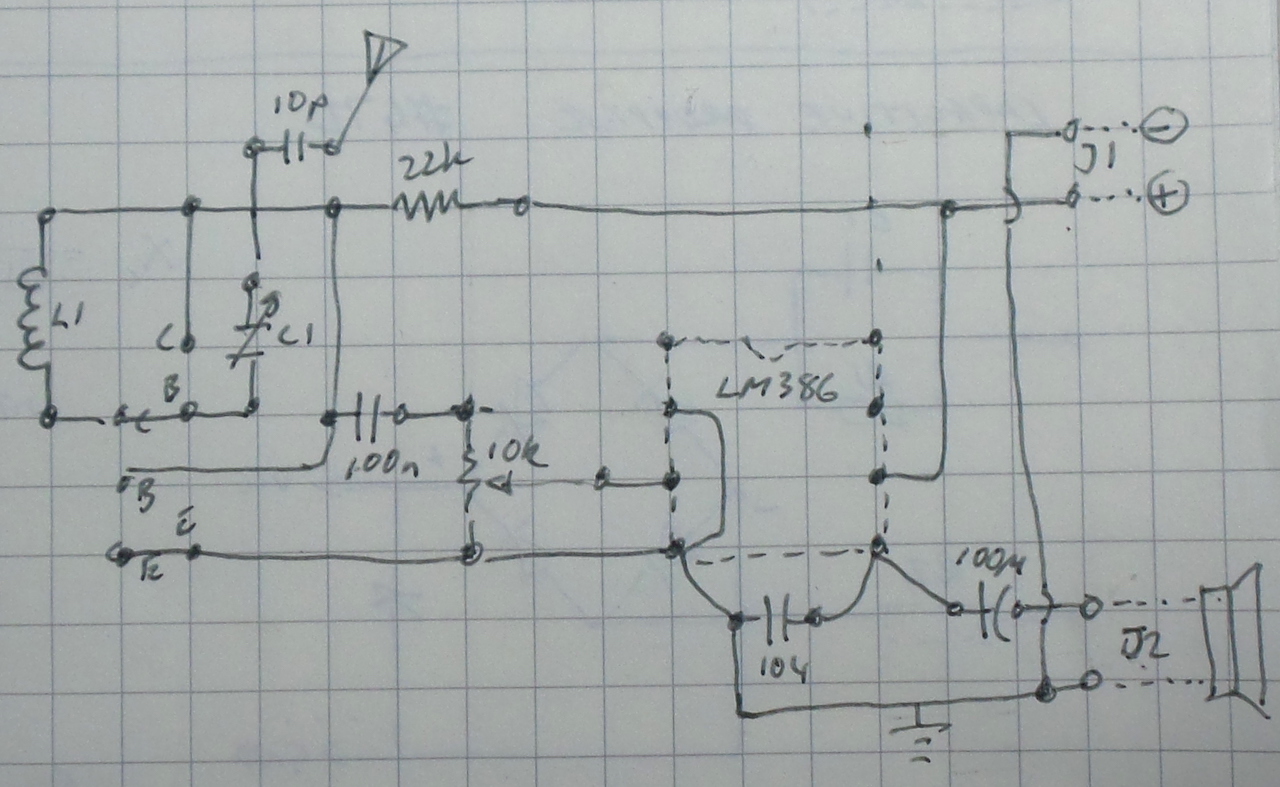 10p
22k
J1
−
+
L1
C
C1
B
C
LM386
100n
10k
B
E
E
100µ
104
J2